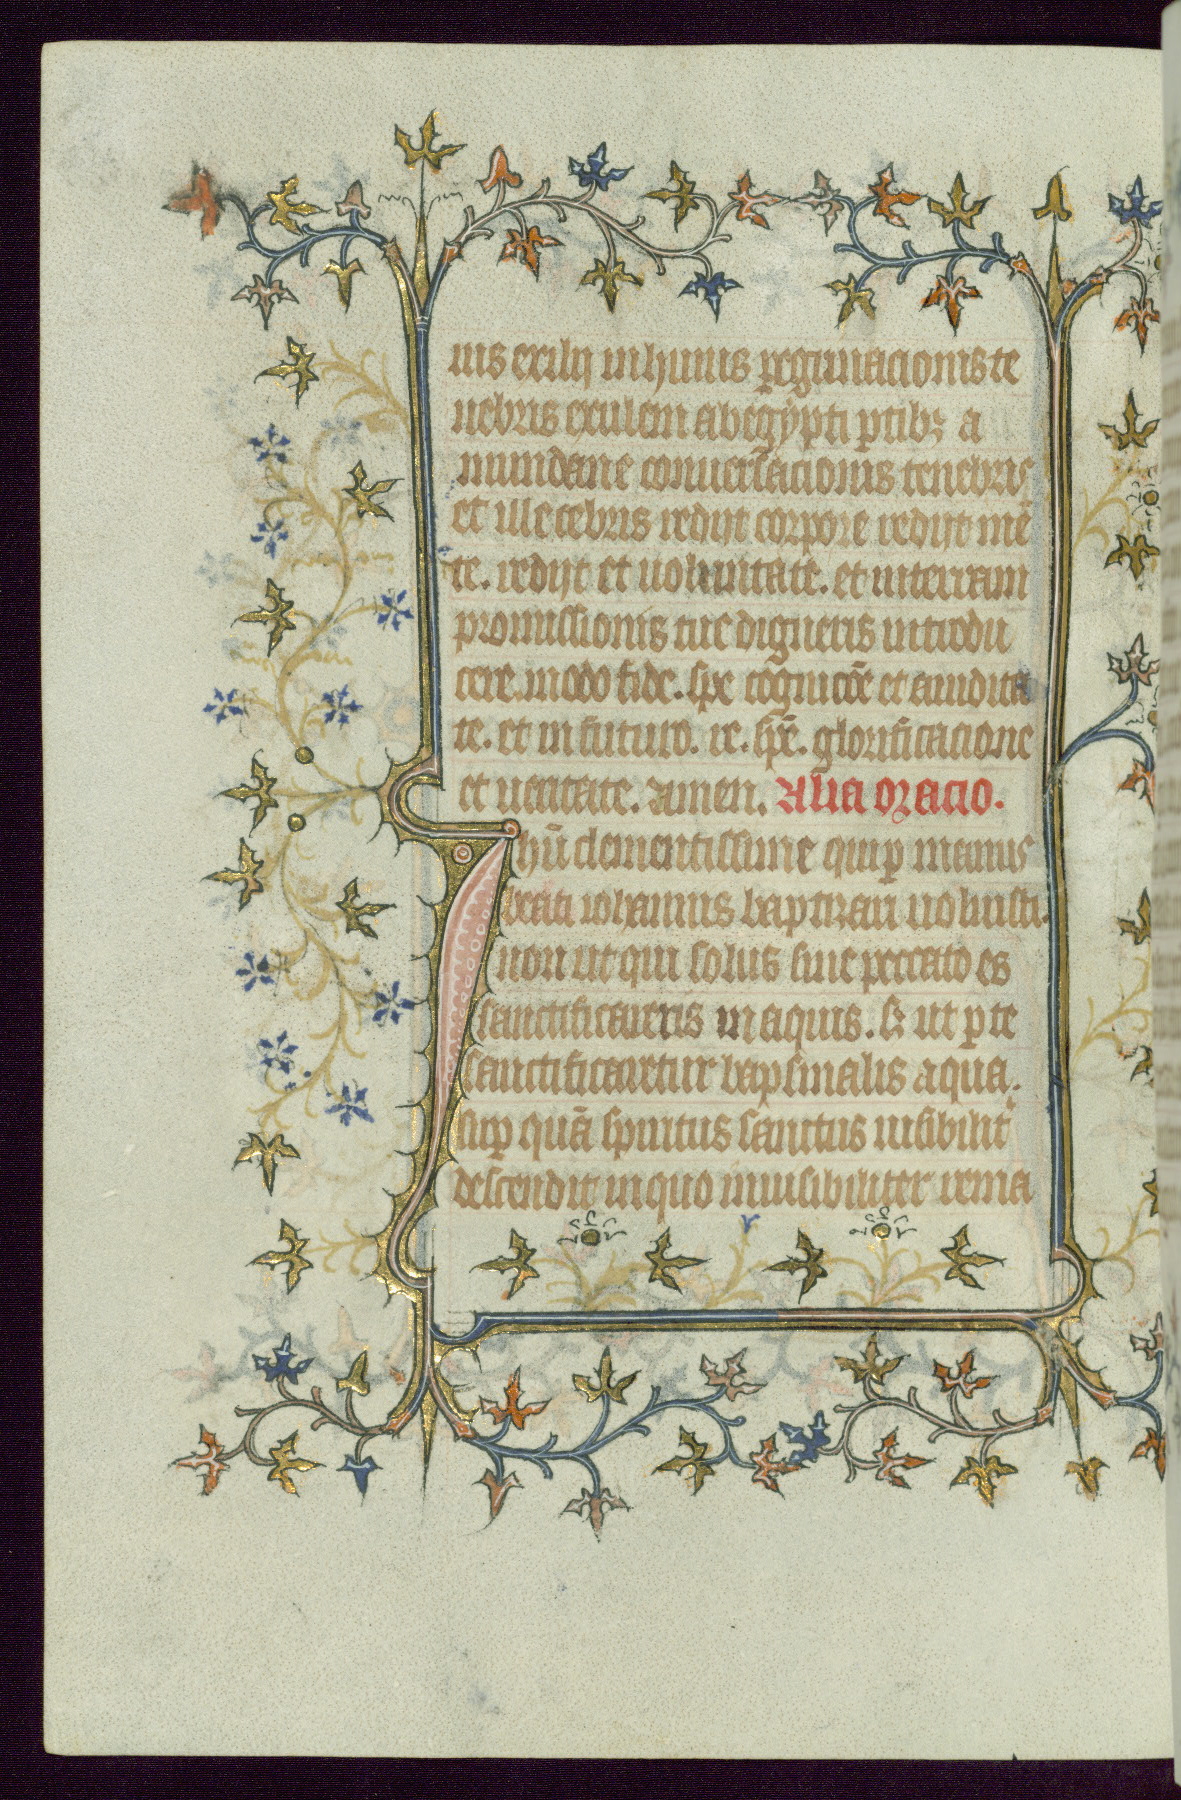 uis exilij in huius peginacionis te
nebris exulem ab egypti ptibz a
mundane conuersacionis tenebris
et illecebris redijt corpore redijt mē
te. redijt et uoluntate. et in terram
promissionis tue digneris introdu
cere. modo fide. spe cognicōe et auidita
te. et in futuro. re. spē. glorificacione
et ueritate. Amen. Alia oracio.
Ihū clementissime qui p manus
beati iohannis baptizari uoluisti.
non ut qui solus sine peccato es
sanctificareris in aquis. S; ut p te
sanctificaretur bapsmalis aqua.
sup quā spiritus sanctus uisibilit
descendit in quo inuisibiliter rema